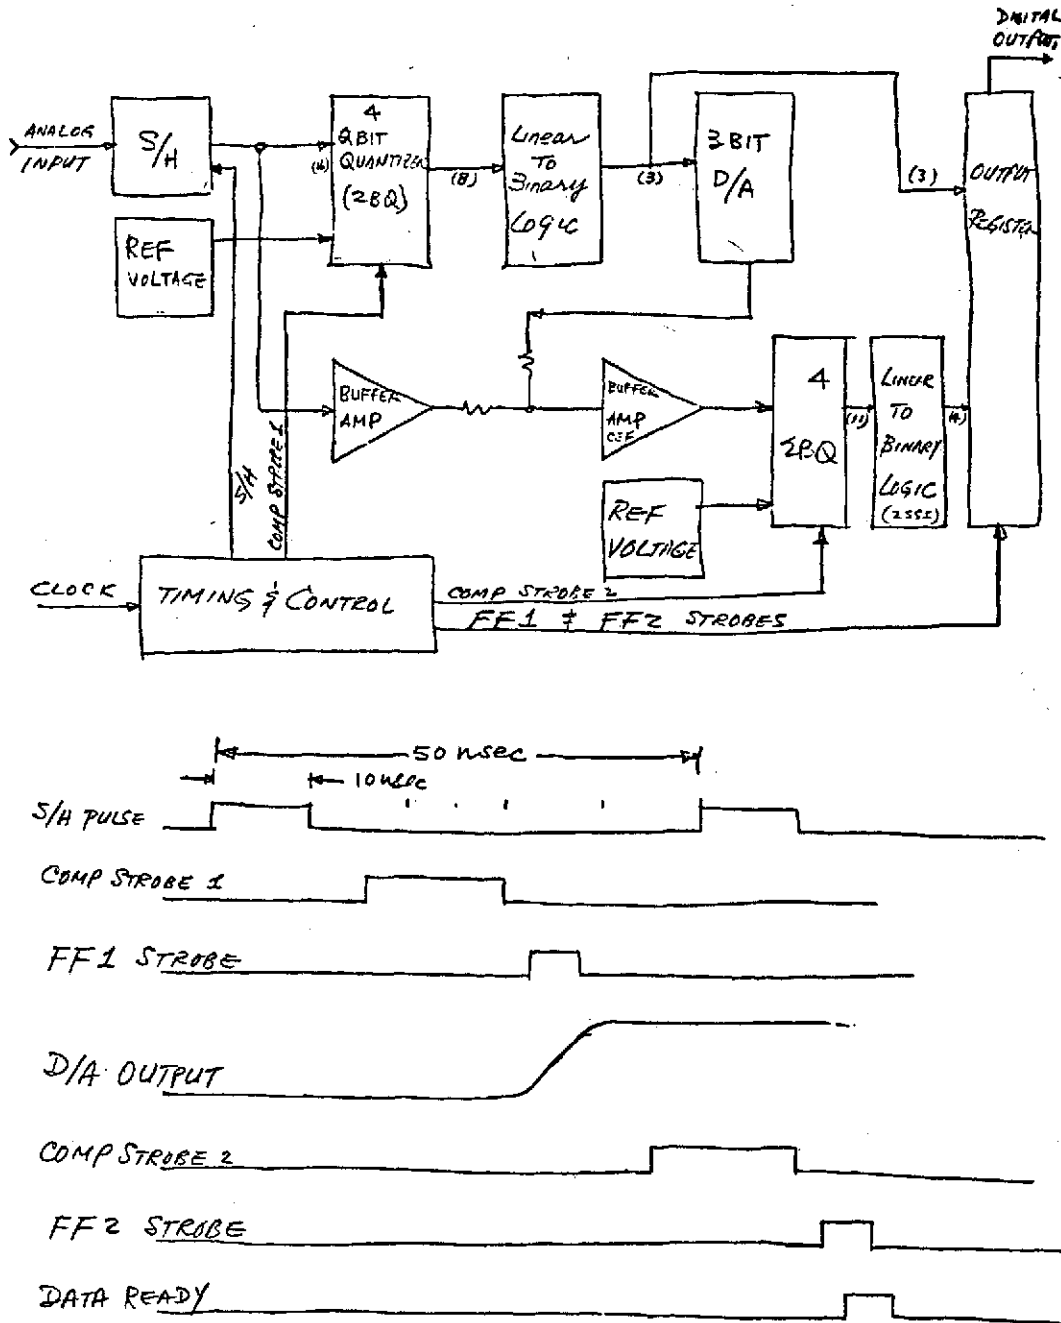 DIGITAL
OUTPUT
ANALOG
INPUT
S/H
4
2 BIT
QUANTIZER
(2BQ)
(8)
LINEAR
TO
BINARY
LOGIC
(3)
3 BIT
D/A
(3)
OUTPUT
REGISTER
REF
VOLTAGE
BUFFER
AMP
BUFFER
AMP
4
2BQ
(11)
LINEAR
TO
BINARY
LOGIC
(4)
REF
VOLTAGE
S/H
COMP STROBE 1
CLOCK
TIMING & CONTROL
COMP STROBE 2
FF1 & FF2 STROBES
50 nsec
10 nsec
S/H PULSE
COMP STROBE 1
FF1 STROBE
D/A OUTPUT
COMP STROBE 2
FF2 STROBE
DATA READY